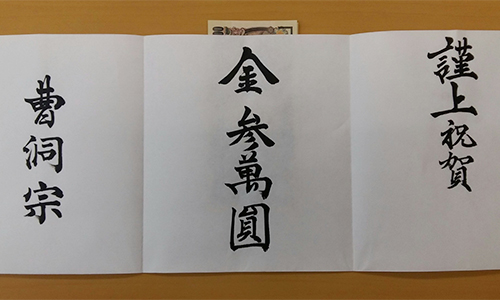 謹上祝賀
金参萬圓
曹洞宗